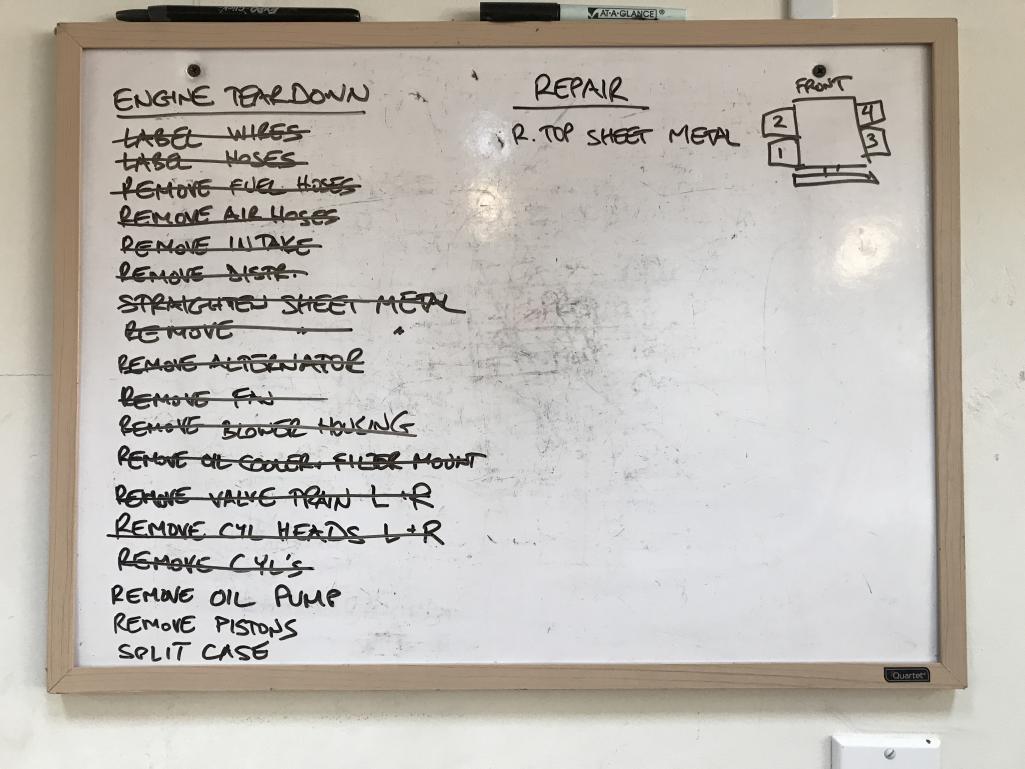 AT-A-GLANCE®
ENGINE TEARDOWN
LABEL WIRES
LABEL HOSES
REMOVE FUEL HOSES
REMOVE AIR HOSES
REMOVE INTAKE
REMOVE DISTR.
STRAIGHTEN SHEET METAL
REMOVE " "
REMOVE ALTERNATOR
REMOVE FAN
REMOVE BLOWER HOUSING
REMOVE OIL COOLER. FILTER MOUNT
REMOVE VALVE TRAIN L + R
REMOVE CYL HEADS L + R
REMOVE CYL'S
REMOVE OIL PUMP
REMOVE PISTONS
SPLIT CASE
REPAIR
R. TOP SHEET METAL
FRONT
2 4
1 3
Quartet